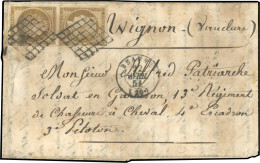 Avignon (Vaucluse)
Monsieur Alfred Patriarche
Soldat en Garnison 13e Régiment
de Chasseurs à Cheval, 4e Escadron
3e Peloton